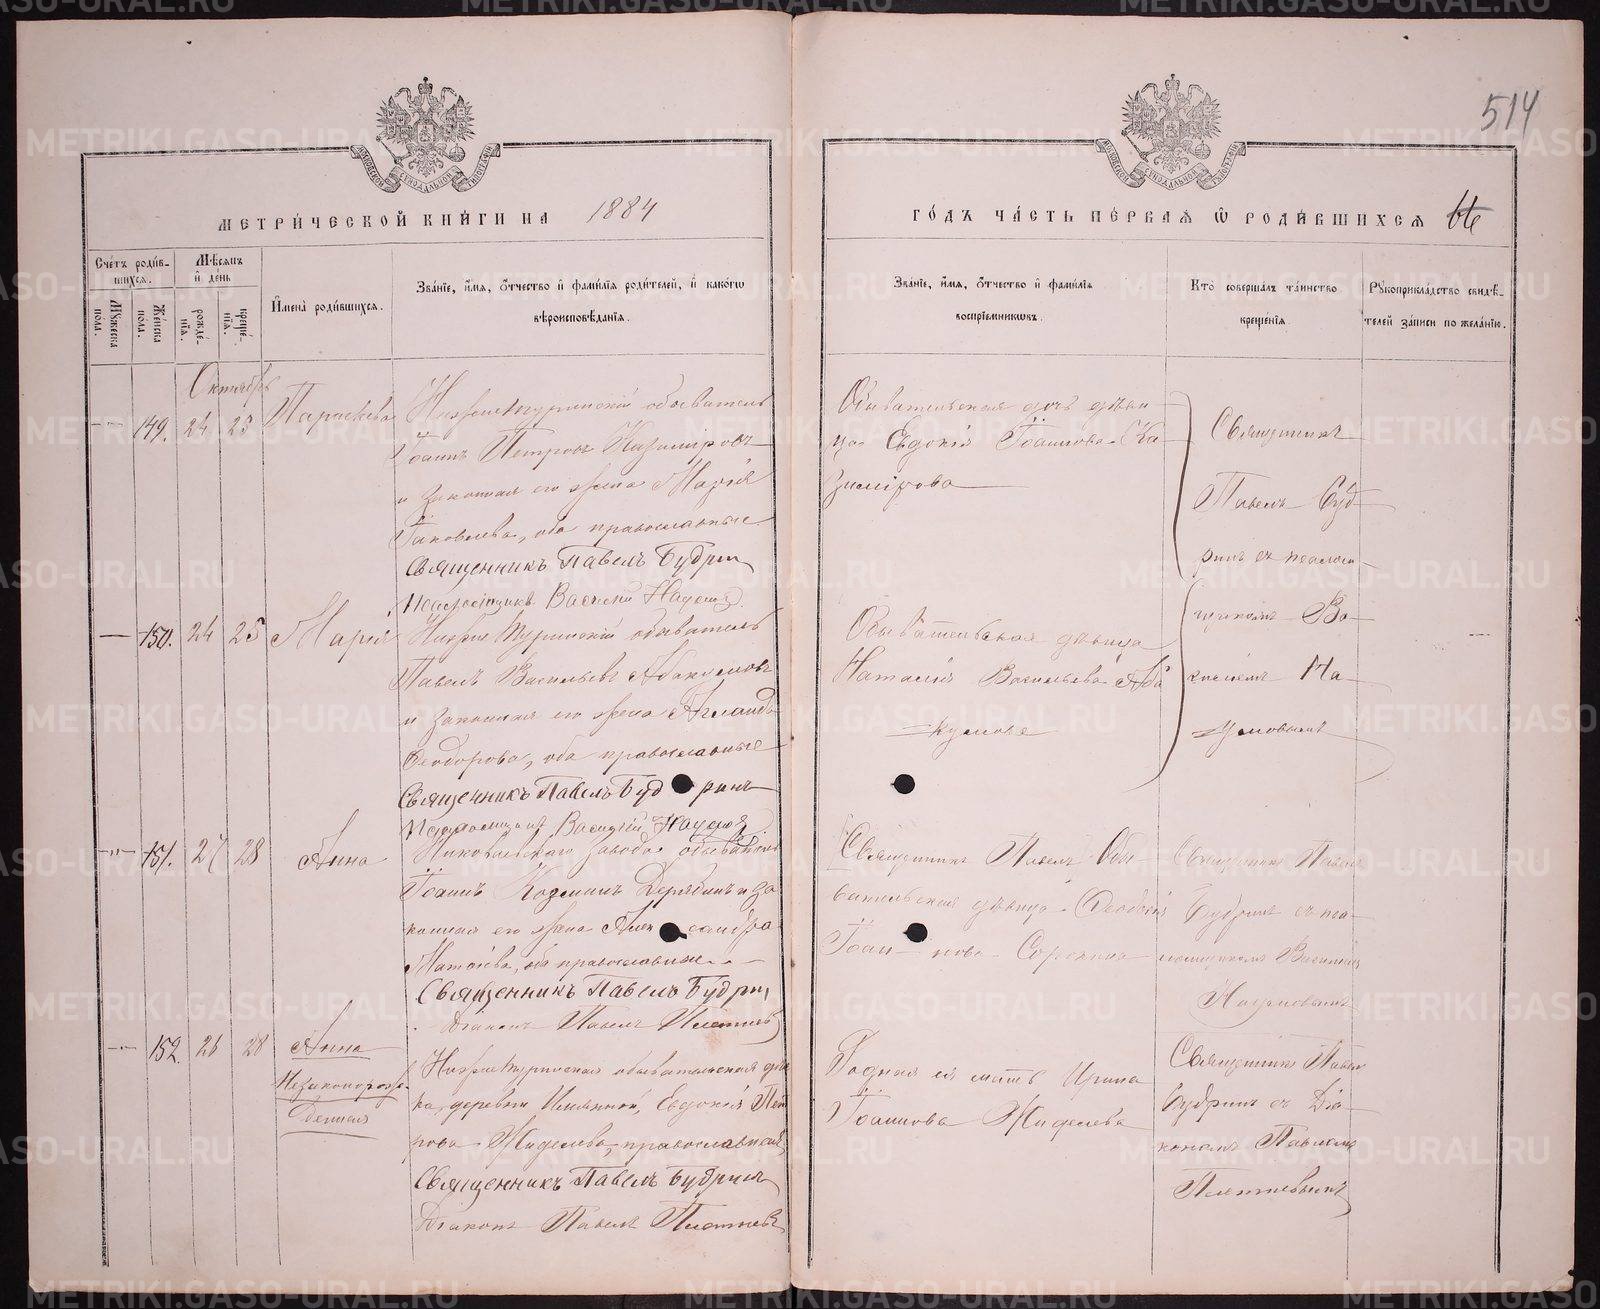 514
МЕТРИЧЕСКОЙ КНИГИ НА 1884
ГОДЪ ЧАСТЬ ПЕРВАЯ Ѿ РОДИВШИХСЯ
Счетъ родив-
шихся.
Мѣсяцъ
и день
Мужеска
пола.
Женска
пола.
рожде-
нія.
креще-
нія.
Имена родившихся.
Званіе, имя, отчество и фамилія родителей, и какогѡ
вѣроисповѣданія.
Званіе, имя, отчество и фамилія
воспріемниковъ.
Кто совершалъ таинство
крещенія.
Рукоприкладство свидѣ-
телей записи по желанію.
Октябрь
149. 24 25 Параскева
Нижнетуринскій обыватель
Іоаннъ Петровъ Казиміровъ
и законная его жена Марія
Іаковлева, оба православные
Священникъ Павелъ Будрин
Псаломщикъ Василий
Обывательская дочь дѣви-
ца Евдокія Іоаннова Ка-
зимірова
Священникъ
Павелъ Буд-
ринъ съ псалом-
щикомъ Ва-
силіемъ На-
умовымъ
150. 24 25 Марія
Нижнетуринскій обыватель
Павелъ Васильевъ Абакумовъ
и законная его жена Аглаида
Ѳеодорова, оба православные
Священникъ Павелъ Будринъ
Псаломщикъ Василий
Обывательская дѣвица
Наталія Васильева Аба
кумова
151. 27 28 Анна
Николаевскаго завода обыватель
Іоаннъ Козминъ Дерябинъ и за
конная его жена Александра
Матѳіева, оба православные
Священникъ Павелъ Будрин
Діаконъ Павелъ Плетневъ
Священникъ Павелъ Обы-
вательская дѣвица
Іоаннова Сорокина
Священникъ Павелъ
Будринъ съ пса-
ломщикомъ Василіемъ
Наумовымъ
152. 26 28 Анна
Незаконорож-
денная
Нижнетуринская обывательская дѣв
ка, деревни Ильиной, Евдокія Пет
рова Жиделева, православная
Священникъ Павелъ Будрин
Діаконъ Павелъ Плетневъ
Родная ея мать Ирина
Іоаннова Жиделева
Священникъ Павелъ
Будринъ съ Діа-
кономъ Павломъ
Плетневымъ
METRIKI.GASO-URAL.RU